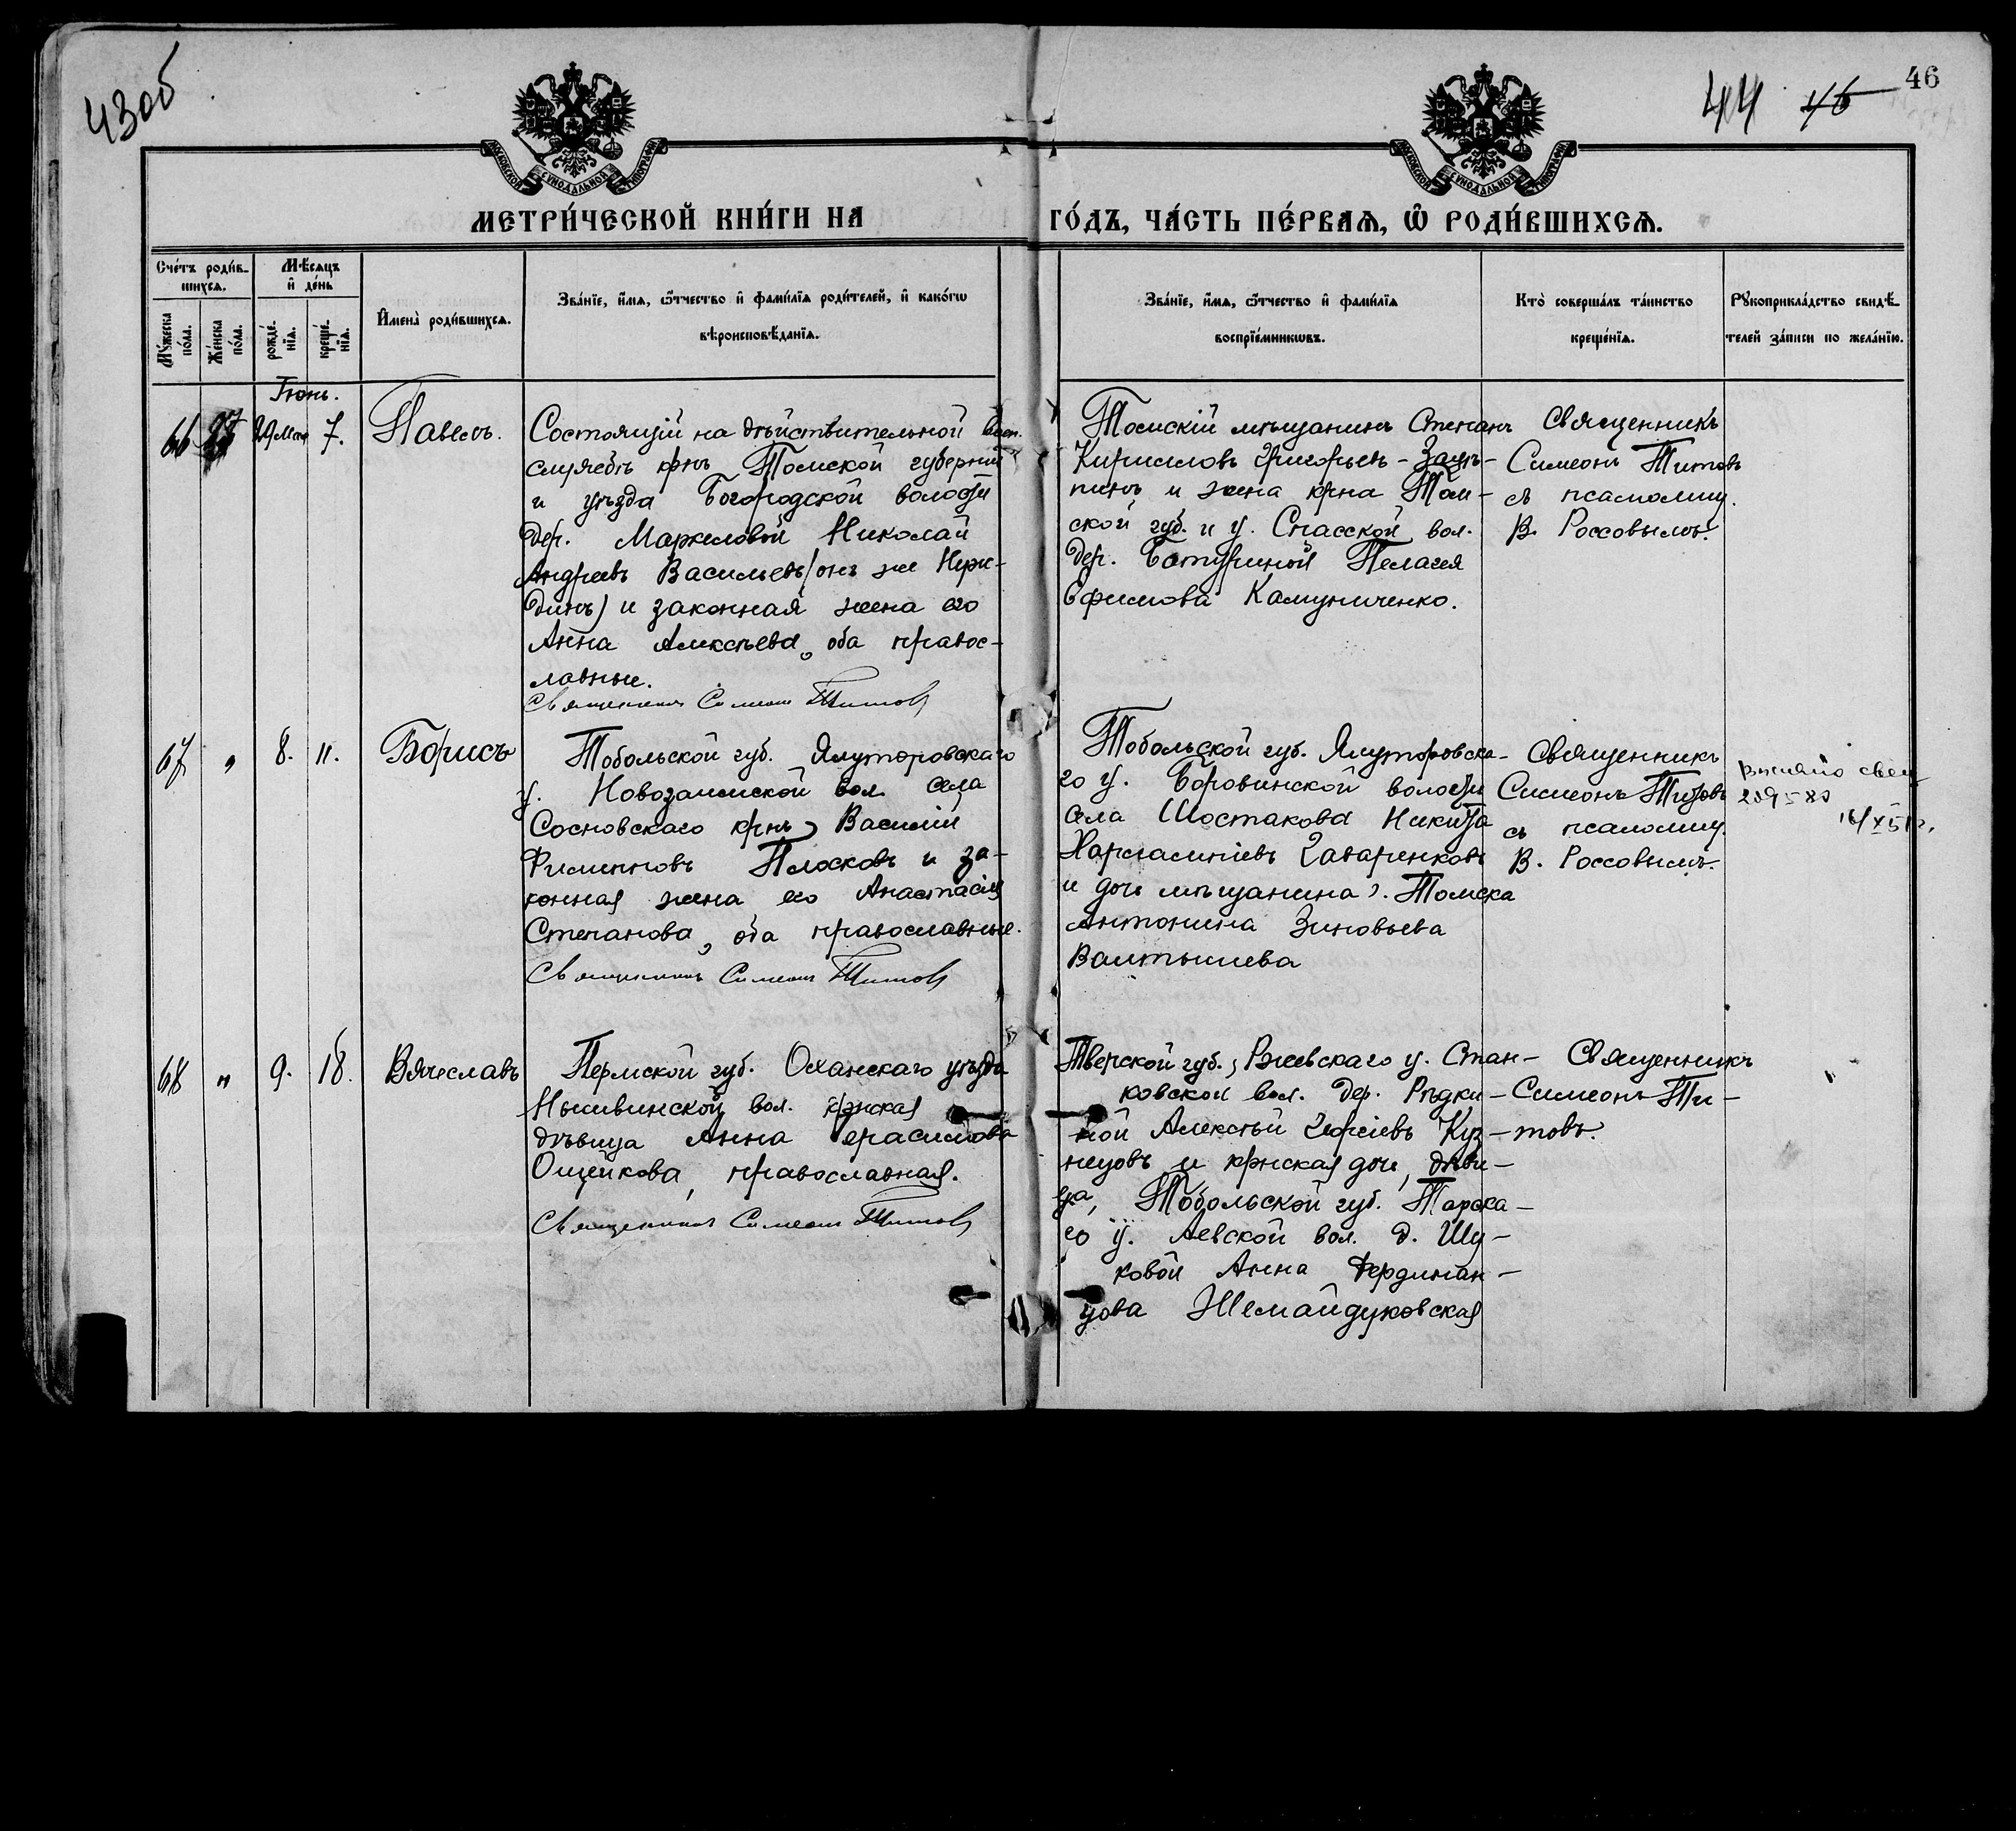 43 об
44 46
46
МОСКОВСКОЙ СУНОДАЛЬНОЙ ТИПОГРАФІИ
МОСКОВСКОЙ СУНОДАЛЬНОЙ ТИПОГРАФІИ
МЕТРИ́ЧЕСКОЙ КНИ́ГИ НА
ГО́ДЪ, ЧА́СТЬ ПЕ́РВАѦ, Ѽ РОДИ́ВШИХСѦ.
Сче́тъ роди́в-
шихсѧ.
Мꙋ́жеска по́ла.
Же́нска по́ла.
Мѣ́сяцъ и҆ де́нь
рожде́-нїѧ.
креще́-нїѧ.
И҆мена̀ роди́вшихсѧ.
Зва́нїе, и҆́мѧ, ѻ҆́тчество и҆ фами́лїѧ роди́телей, и҆ како́гѡ
вѣроисповѣ́данїѧ.
Зва́нїе, и҆́мѧ, ѻ҆́тчество и҆ фами́лїѧ
воспрїе́мникѡвъ.
Кто̀ соверша́лъ та́инство
креще́нїѧ.
Рꙋкоприкла́дство свидѣ́-
телей за́писи по жела́нїю.
Іюнь.
66
29 мая
7.
Павелъ.
Состоящій на дѣйствительной воен.
службѣ крнъ Томской губерніи
и уѣзда Богородской волости
дер. Маркеловой Николай
Андреевъ Васильевъ (онъ же
динъ) и законная жена его
Анна Алексѣева, оба правос-
лавные.
Священникъ Симеонъ Титовъ
Томскій мѣщанинъ Степанъ
Кирилловъ Григорьевъ-
и жена крна Том-
ской губ. и у. Спасской вол.
дер. Батуриной Пелагея
Ефимова Камуниченко.
Священникъ
Симеонъ Титовъ
съ псаломщ.
В. Россовымъ.
67
"
8.
11.
Борисъ
Тобольской губ. Ялуторовскаго
у. Новозаимской вол. села
Сосновскаго крнъ Василій
Филипповъ Плосковъ и за-
конная жена его Анастасія
Степанова, оба православные.
Священникъ Симеонъ Титовъ
Тобольской губ. Ялуторовска-
го у. Боровинской волости
села Шостакова Никита
Харлампіевъ Гаваренковъ
и дочь мѣщанина г. Томска
Антонина Зиновьева
Священникъ
Симеонъ Титовъ
съ псаломщ.
В. Россовымъ.
209580
68
"
9.
18.
Вячеславъ
Пермской губ. Оханскаго уѣзда
Нытвинской вол. крнская
дѣвица Анна Герасимова
Ощепкова, православная.
Священникъ Симеонъ Титовъ
Тверской губ., Ржевскаго у. Стан-
ковской вол. дер. Рѣдки-
ной Алексѣй Георгіевъ Куз-
нецовъ и крнская дочь, дѣви-
ца, Тобольской губ. Тарска-
го у. Аевской вол. д. Шу-
ковой Анна Фердинан-
дова Жемайдуковская
Священникъ
Симеонъ Ти-
товъ.